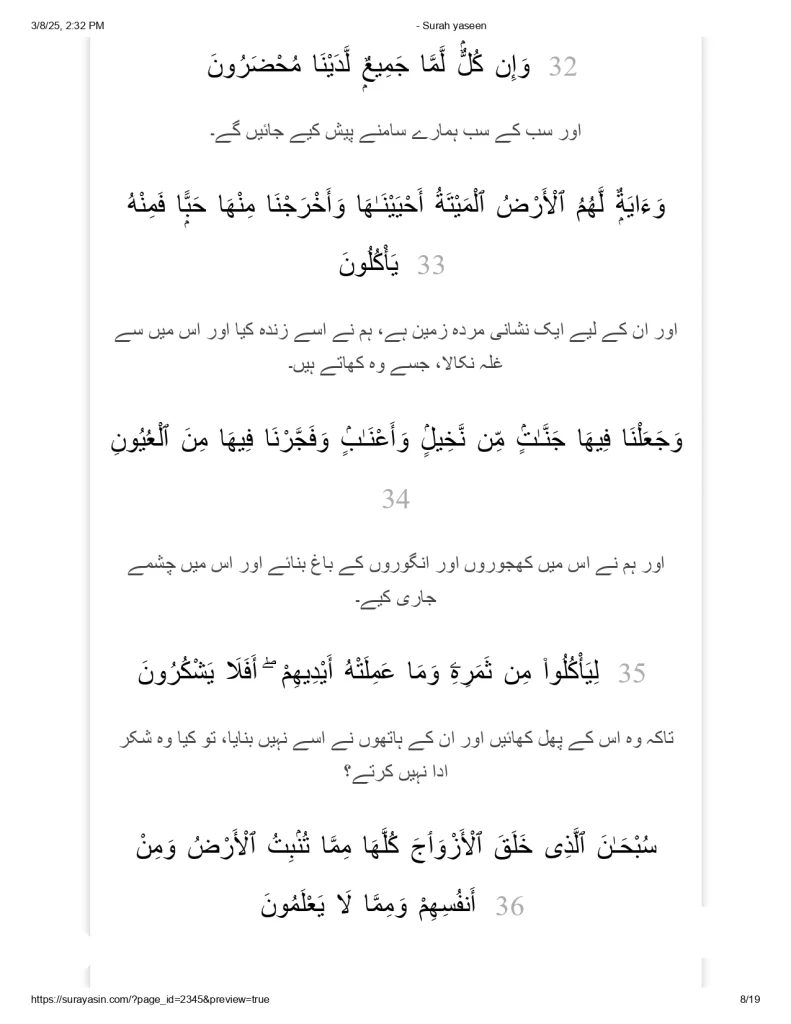 3/8/25, 2:32 PM - Surah yaseen
وَإِن كُلٌّۭ لَّمَّا جَمِيعٌۭ لَّدَيْنَا مُحْضَرُونَ 32
اور سب کے سب ہمارے سامنے پیش کیے جائیں گے۔
وَءَايَةٌۭ لَّهُمُ ٱلْأَرْضُ ٱلْمَيْتَةُ أَحْيَيْنَـٰهَا وَأَخْرَجْنَا مِنْهَا حَبًّۭا فَمِنْهُ
يَأْكُلُونَ 33
اور ان کے لیے ایک نشانی مردہ زمین ہے، ہم نے اسے زندہ کیا اور اس میں سے
غلہ نکالا، جسے وہ کھاتے ہیں۔
وَجَعَلْنَا فِيهَا جَنَّـٰتٍۢ مِّن نَّخِيلٍۢ وَأَعْنَـٰبٍۢ وَفَجَّرْنَا فِيهَا مِنَ ٱلْعُيُونِ
34
اور ہم نے اس میں کھجوروں اور انگوروں کے باغ بنائے اور اس میں چشمے
جاری کیے۔
لِيَأْكُلُوا۟ مِن ثَمَرِهِۦ وَمَا عَمِلَتْهُ أَيْدِيهِمْ ۖ أَفَلَا يَشْكُرُونَ 35
تاکہ وہ اس کے پھل کھائیں اور ان کے ہاتھوں نے اسے نہیں بنایا، تو کیا وہ شکر
ادا نہیں کرتے؟
سُبْحَـٰنَ ٱلَّذِى خَلَقَ ٱلْأَزْوَٰجَ كُلَّهَا مِمَّا تُنۢبِتُ ٱلْأَرْضُ وَمِنْ
أَنفُسِهِمْ وَمِمَّا لَا يَعْلَمُونَ 36
https://surayasin.com/?page_id=2345&preview=true 8/19